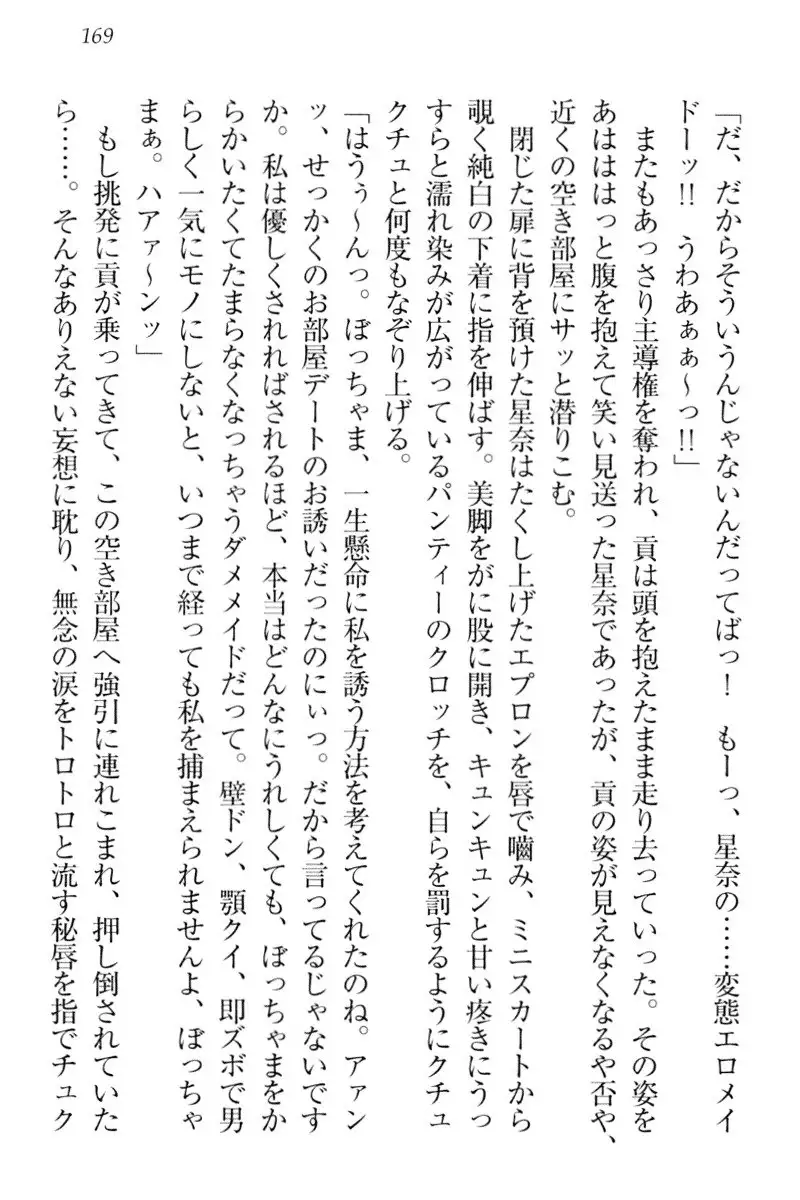 169
「だ、だからそういうんじゃないんだってばっ！　もーっ、星奈の……変態エロメイ
ドーッ!!　うわあぁぁ～っ!!」
　またもあっさり主導権を奪われ、貢は頭を抱えたまま走り去っていった。その姿を
あはははっと腹を抱えて笑い見送った星奈であったが、貢の姿が見えなくなるや否や、
近くの空き部屋にサッと潜りこむ。
　閉じた扉に背を預けた星奈はたくし上げたエプロンを唇で嚙み、ミニスカートから
覗く純白の下着に指を伸ばす。美脚をがに股に開き、キュンキュンと甘い疼きにうっ
すらと濡れ染みが広がっているパンティーのクロッチを、自らを罰するようにクチュ
クチュと何度もなぞり上げる。
「はうぅ～んっ。ぼっちゃま、一生懸命に私を誘う方法を考えてくれたのね。アァン
ッ、せっかくのお部屋デートのお誘いだったのにぃっ。だから言ってるじゃないです
か。私は優しくされればされるほど、本当はどんなにうれしくても、ぼっちゃまをか
らかいたくてたまらなくなっちゃうダメメイドだって。壁ドン、顎クイ、即ズボで男
らしく一気にモノにしないと、いつまで経っても私を捕まえられませんよ、ぼっちゃ
まぁ。ハアァ～ンッ」
　もし挑発に貢が乗ってきて、この空き部屋へ強引に連れこまれ、押し倒されていた
ら……。そんなありえない妄想に耽り、無念の涙をトロトロと流す秘唇を指でチュク